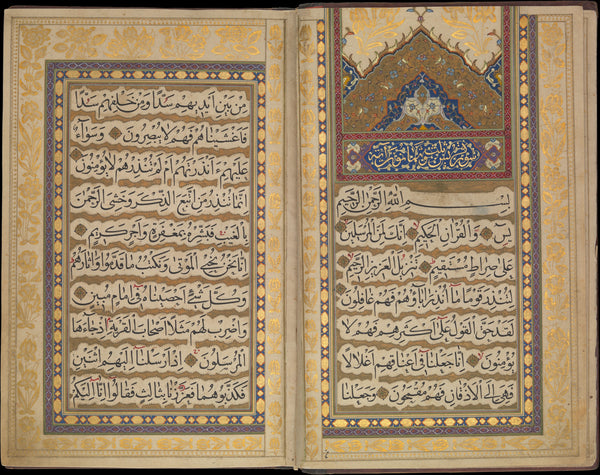 سورة يس
بسم الله الرحمن الرحيم
يس والقرآن الحكيم انك لمن المرسلين
على صراط مستقيم تنزيل العزيز الرحيم
لتنذر قوما ما أنذر آباؤهم فهم غافلون
لقد حق القول على أكثرهم فهم لا
يؤمنون انا جعلنا في أعناقهم أغلالا
فهي إلى الأذقان فهم مقمحون وجعلنا
من بين أيديهم سدا ومن خلفهم سدا
فأغشيناهم فهم لا يبصرون وسواء
عليهم ءأنذرتهم أم لم تنذرهم لا يؤمنون
إنما تنذر من اتبع الذكر وخشي الرحمن
بالغيب فبشره بمغفرة وأجر كريم
إنا نحن نحيي الموتى ونكتب ما قدموا وآثارهم
وكل شيء أحصيناه في إمام مبين
واضرب لهم مثلا أصحاب القرية إذ جاءها
المرسلون إذ أرسلنا إليهم اثنين
فكذبوهما فعززنا بثالث فقالوا إنا إليكم